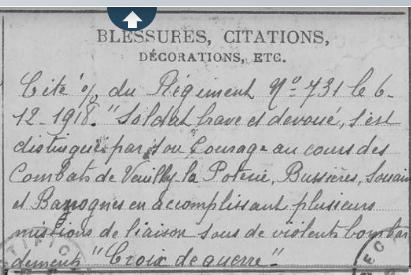 BLESSURES, CITATIONS,
DÉCORATIONS, ETC.
Cité o/ du Régiment No 731 le 6-
12-1918. "Soldat brave et dévoué, s'est
distingué par son Courage au cours des
Combats de Veuilly la Poterie, Bussières, Souain
et Bazognes en accomplissant plusieurs
missions de liaison sous de violents bombar
dements" "Croix de guerre".